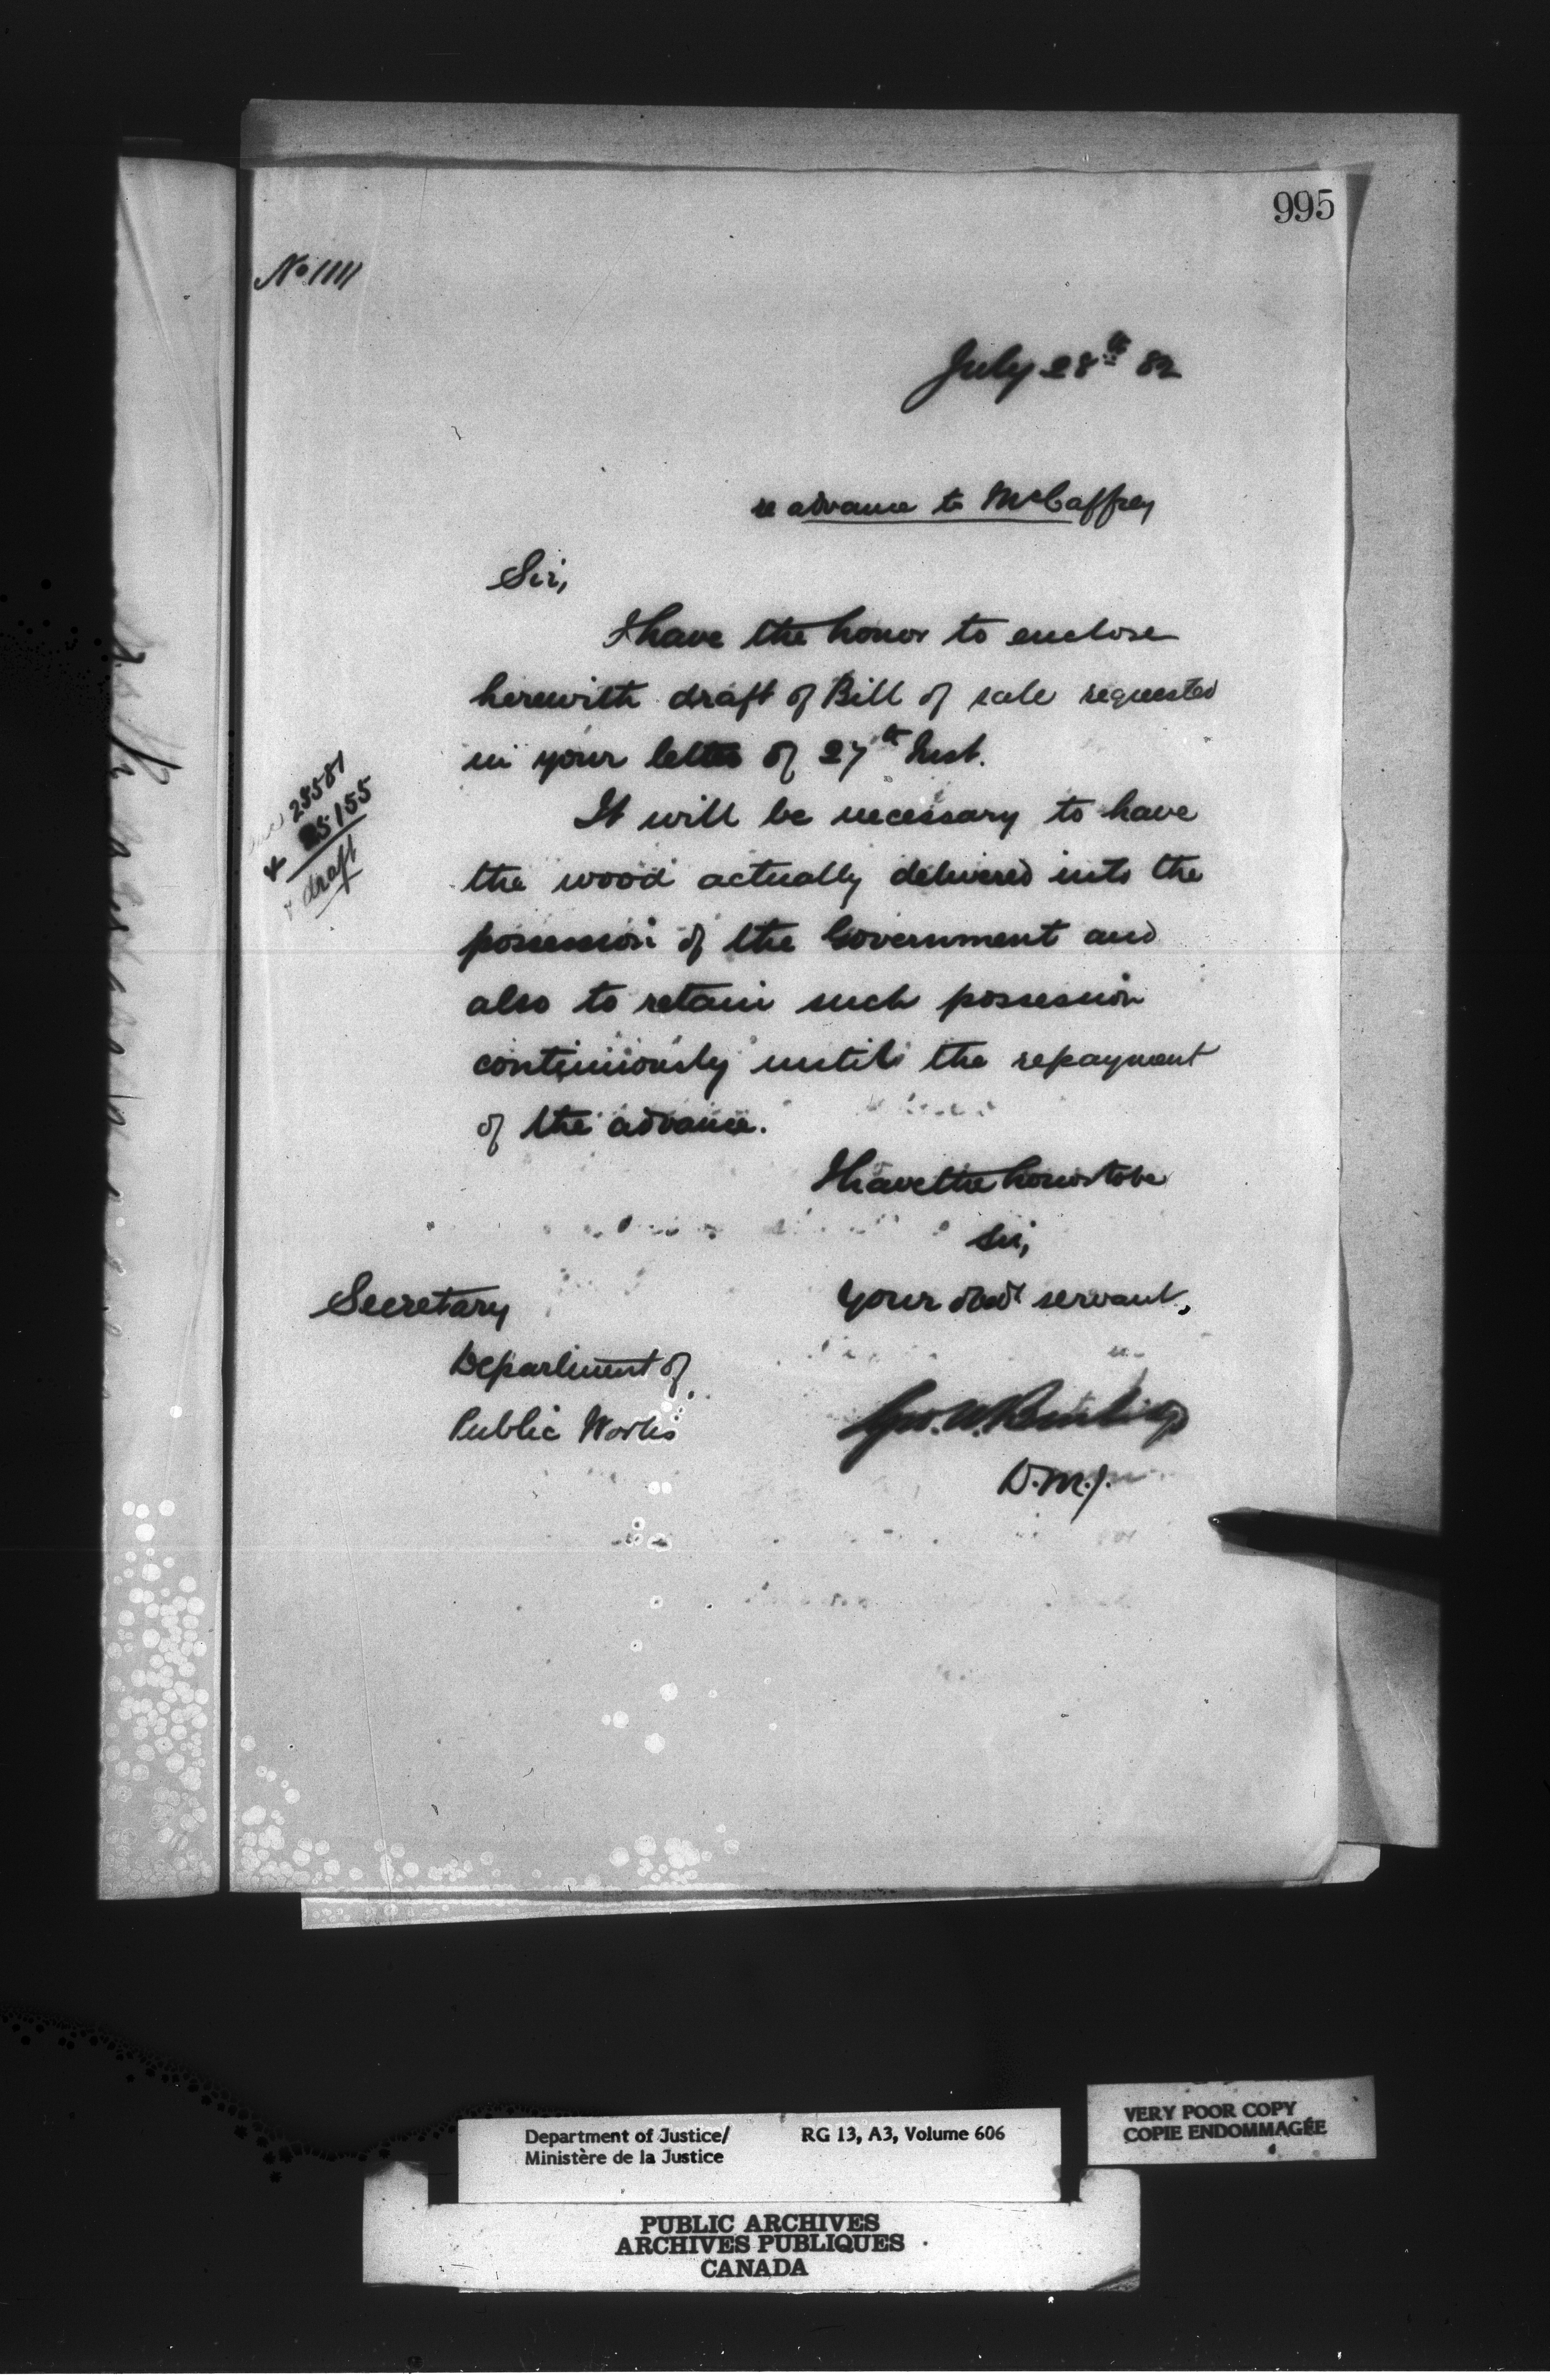 995
No 1111
July 28th 82
re advance to McCaffrey
Sir,
I have the honor to enclose
herewith draft of Bill of sale requested
in your letter of 27th Inst.
28581
& 25155
& draft
It will be necessary to have
the wood actually delivered into the
possession of the Government and
also to retain such possession
continuously until the repayment
of the advance.
I have the honor to be
Sir,
Your obedt servant,
Secretary
Department of
Public Works
Geo. W. Burbidge
D.M.J.
Department of Justice/ RG 13, A3, Volume 606
Ministère de la Justice
VERY POOR COPY
COPIE ENDOMMAGÉE
PUBLIC ARCHIVES
ARCHIVES PUBLIQUES
CANADA